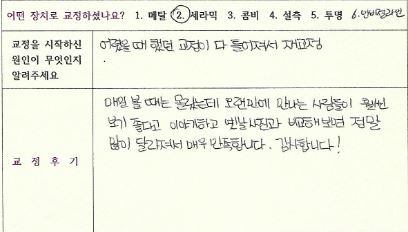 어떤 장치로 교정하셨나요? 1. 메탈 2. 세라믹 3. 콤비 4. 설측 5. 투명 6. 인비절라인
교정을 시작하신 원인이 무엇인지 알려주세요
어렸을 때 했던 교정이 다 틀어져서 재교정
교정후기
매일 볼 때는 몰랐는데 오랜만에 만나는 사람들이 훨씬
보기 좋다고 이야기하고 옛날사진과 비교해보면 정말
많이 달라져서 매우 만족합니다. 감사합니다!